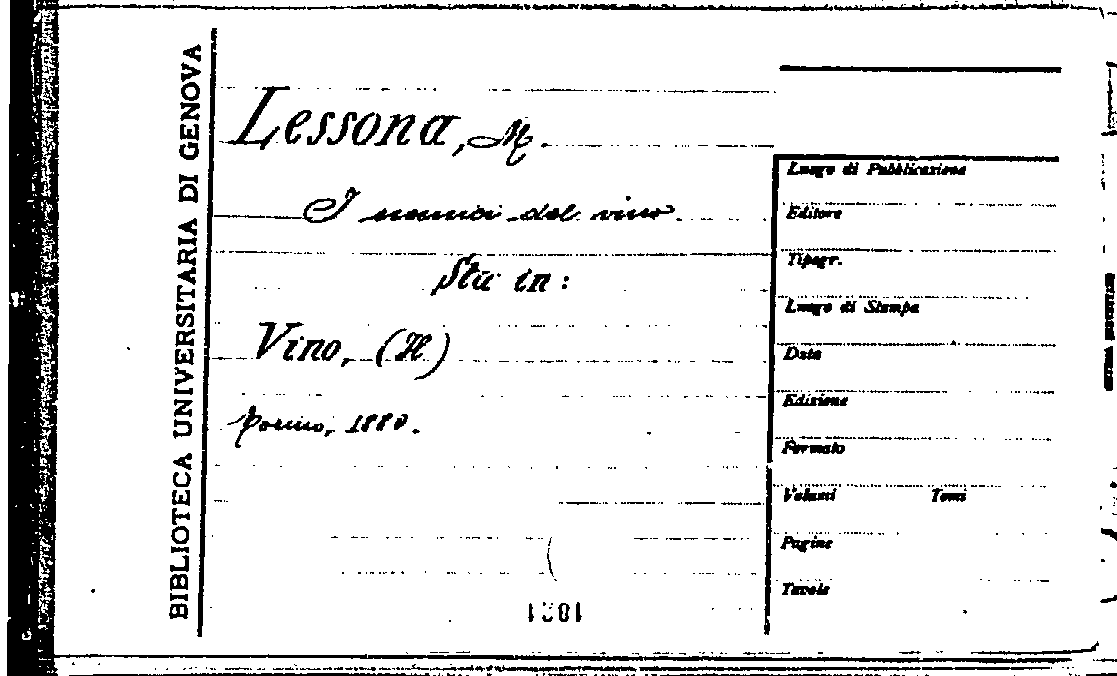 BIBLIOTECA UNIVERSITARIA DI GENOVA
Lessona, M.
I nemici del vino.
Sta in:
Vino, (Il)
Torino, 1880.
Luogo di Pubblicazione
Editore
Tipogr.
Luogo di Stampa
Data
Edizione
Formato
Volumi Tomi
Pagine
Tavole